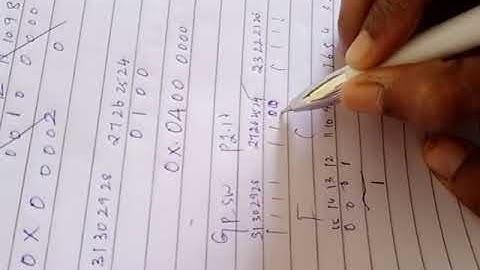 10 9 8
0 0 1 0 0 0 0 0
0X0 00002
31 30 29 28 27 26 25 24
0 1 0 0
0x0400 0000
31 30 29 28 27 26 25 24 23 22 21 20
1 1 1 1 1 1 0 0 1 1 1
F C
15 14 13 12 11 10 6 5 4
0 0 0 1
1